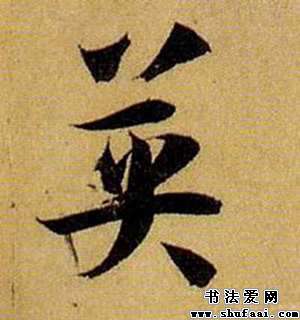 英
书法爱网
www.shufaai.com